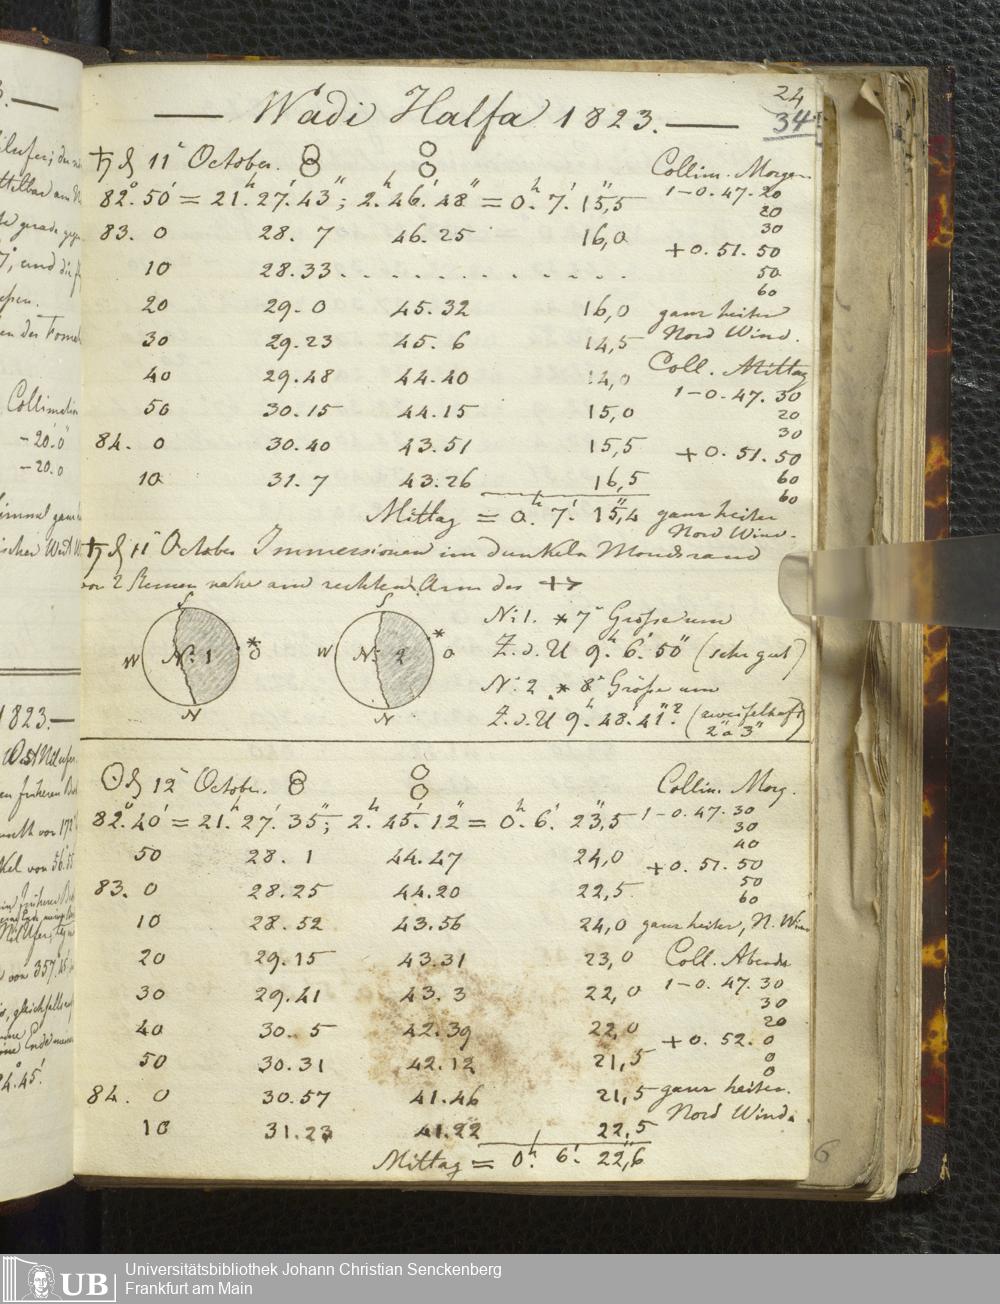 — Wadi Halfa 1823. —
24
34
♄ d 11ᵗ October.
Collim. Morgen
82°. 50' = 21ʰ. 27'. 43"; 2ʰ. 46'. 48" = 0ʰ. 7'. 15",5
1-0. 47. 20
20
83. 0 28. 7 46. 25 16,0
30
+0. 51. 50
10 28. 33. . . . . . . . . . .
50
60
20 29. 0 45. 32 16,0
ganz heiter
30 29. 23 45. 6 14,5
Nord Wind.
40 29. 48 44. 40 14,0
Coll. Mittag
1-0. 47. 30
50 30. 15 44. 15 15,0
20
30
84. 0 30. 40 43. 51 15,5
+0. 51. 50
10 31. 7 43. 26 16,5
60
60
Mittag = 0ʰ. 7'. 15",4
ganz heiter
Nord Wind.
♄ d 11ᵗ October Immersionen im dunkeln Mondsrand
von 2 Sternen nahe am rechten Arm des
S
W Nº. 1 O
*
N
S
W Nº. 2 O
*
N
Nº: 1. * 7ʳ Größe um
Z. d. U 9ʰ. 6'. 50" (sehr gut)
Nº: 2 * 8ʳ Größe um
Z. d. U 9ʰ. 48'. 41"? (zweifelhaft
2" à 3")
☉ d 12ᵗ October.
Collim. Morg.
82°. 40' = 21ʰ. 27'. 35"; 2ʰ. 45'. 12" = 0ʰ. 6'. 23",5
1-0. 47. 30
30
40
50 28. 1 44. 47 24,0
+0. 51. 50
50
60
83. 0 28. 25 44. 20 22,5
10 28. 52 43. 56 24,0
ganz heiter, N. Wind
20 29. 15 43. 31 23,0
Coll. Abends
30 29. 41 43. 3 22,0
1-0. 47. 30
30
20
40 30. 5 42. 39 22,0
+0. 52. 0
0
0
50 30. 31 42. 12 21,5
84. 0 30. 57 41. 46 21,5
ganz heiter.
Nord Wind.
10 31. 23 41. 22 22,5
Mittag = 0ʰ. 6'. 22",6
6
Collimation
-20'. 0"
-20. 0
1823.—
UB
Universitätsbibliothek Johann Christian Senckenberg
Frankfurt am Main